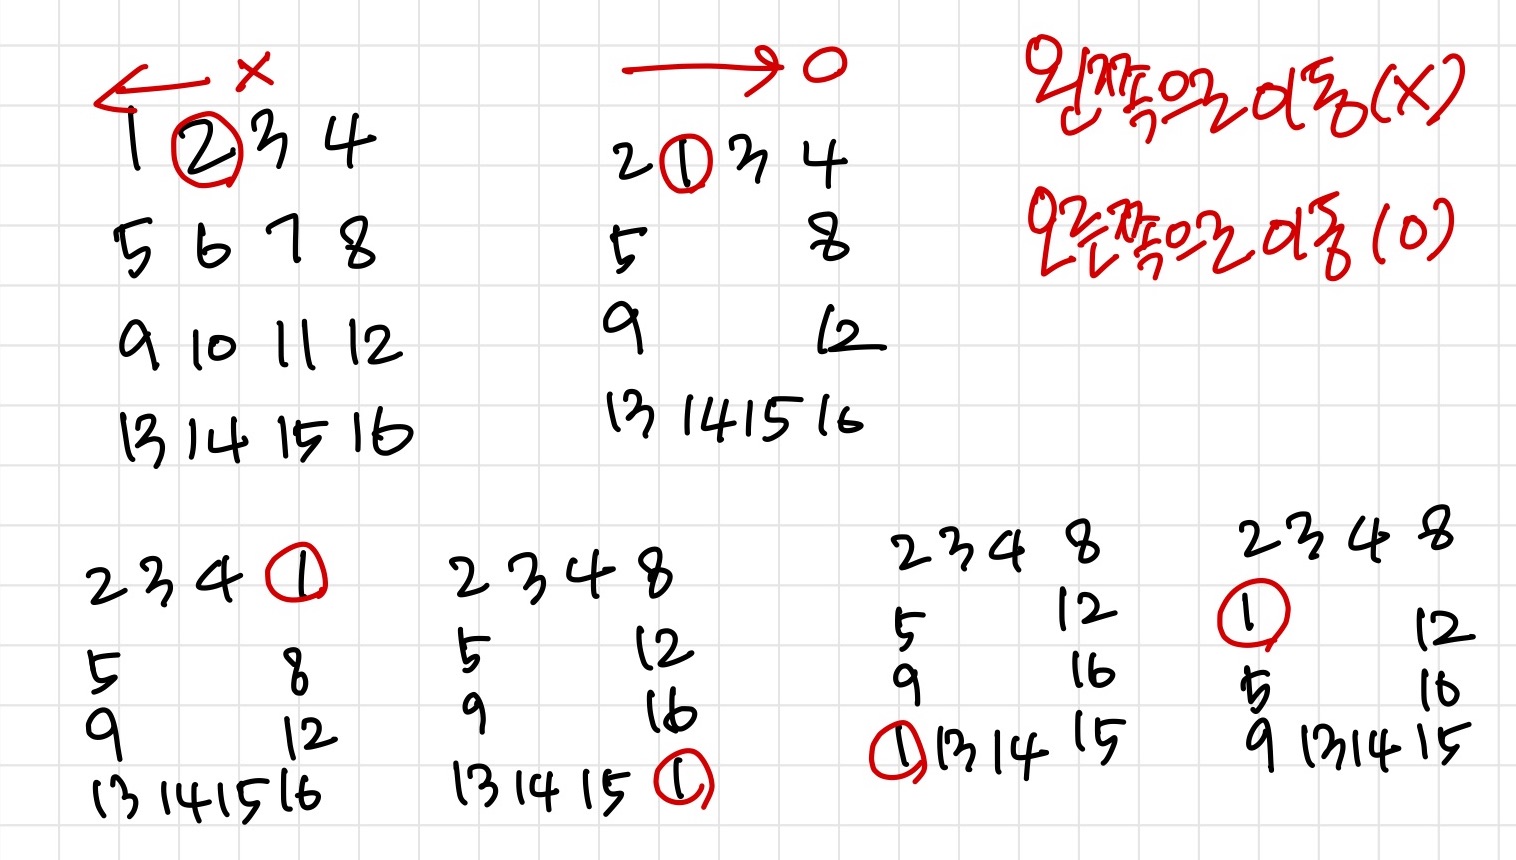 ← X
1 2 3 4
5 6 7 8
9 10 11 12
13 14 15 16
→ O
2 1 3 4
5 8
9 12
13 14 15 16
왼쪽으로 이동(X)
오른쪽으로 이동(O)
2 3 4 1
5 8
9 12
13 14 15 16
2 3 4 8
5 12
9 16
13 14 15 1
2 3 4 8
5 12
9 16
1 13 14 15
2 3 4 8
1 12
5 16
9 13 14 15